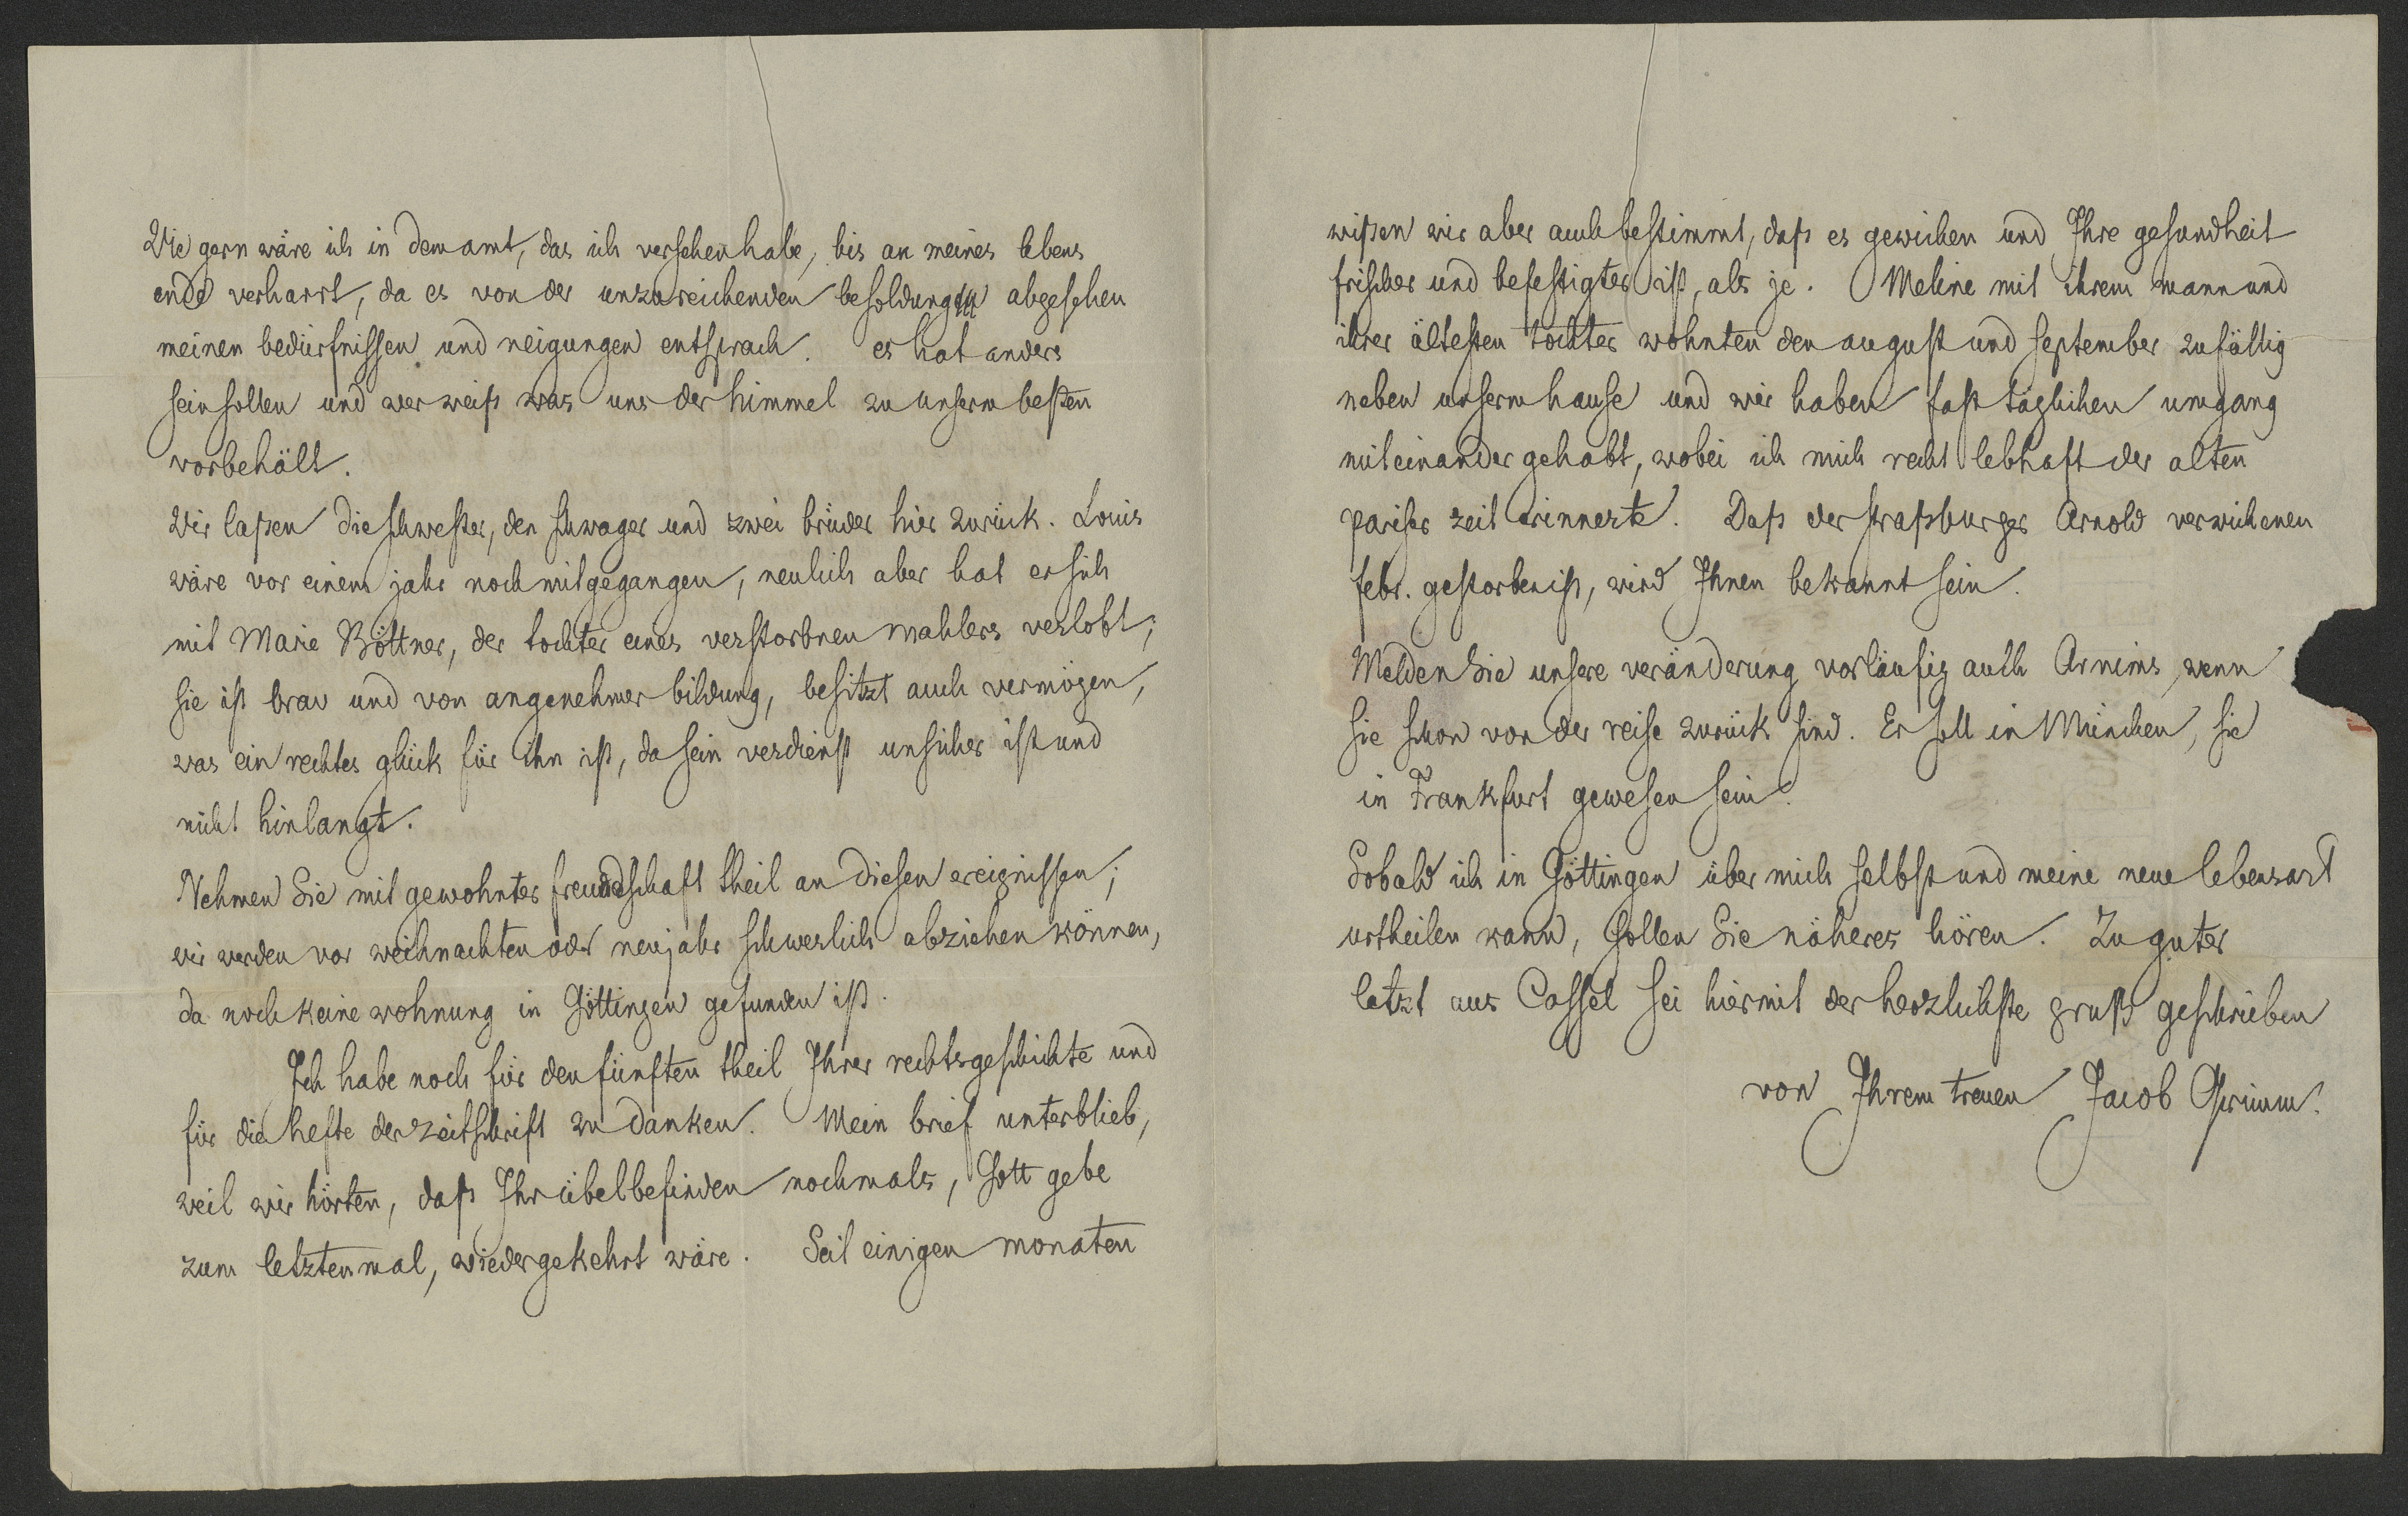 Wie gern wäre ich in dem amt, das ich versehen habe, bis an meines lebens
ende verharrt, da es von der unzureichenden besoldung abgesehen
meinen bedürfnissen und neigungen entsprach. es hat anders
sein sollen und wer weiß was uns der himmel zu unserm besten
vorbehält.
Wir laßen die schwester, den schwager und zwei brüder hier zurück. Louis
wäre vor einem jahr noch mitgegangen, neulich aber hat er sich
mit Marie Böttner, der tochter eines verstorbnen mahlers verlobt;
sie ist brav und von angenehmer bildung, besitzt auch vermögen,
was ein rechtes glück für ihn ist, da sein verdienst unsicher ist und
nicht hinlangt.
Nehmen Sie mit gewohnter freundschaft theil an diesen ereignissen;
wir werden vor weihnachten oder neujahr schwerlich abziehen können,
da noch keine wohnung in Göttingen gefunden ist.
Ich habe noch für den fünften theil Ihrer rechtsgeschichte und
für die hefte der zeitschrift zu danken. Mein brief unterblieb,
weil wir hörten, daß Ihr übelbefinden nochmals, Gott gebe
zum letztenmal, wiedergekehrt wäre. Seit einigen monaten
wißen wir aber auch bestimmt, daß es gewichen und Ihre gesundheit
frischer und befestigter ist, als je. Meline mit ihrem mann und
ihrer ältesten tochter wohnten den august und september zufällig
neben unserm hause und wir haben fast täglichen umgang
miteinander gehabt, wobei ich mich recht lebhaft der alten
pariser zeit erinnerte. Daß der straßburger Arnold verwichenen
febr. gestorben ist, wird Ihnen bekannt sein.
Melden Sie unsere veränderung vorläufig auch Arnims, wenn
sie schon von der reise zurück sind. Er soll in München, sie
in Frankfurt gewesen sein.
Sobald ich in Göttingen über mich selbst und meine neue lebensart
urtheilen kann, sollen Sie näheres hören. Zu guter
letzt aus Cassel sei hiermit der herzlichste gruß geschrieben
von Ihrem treuen Jacob Grimm.